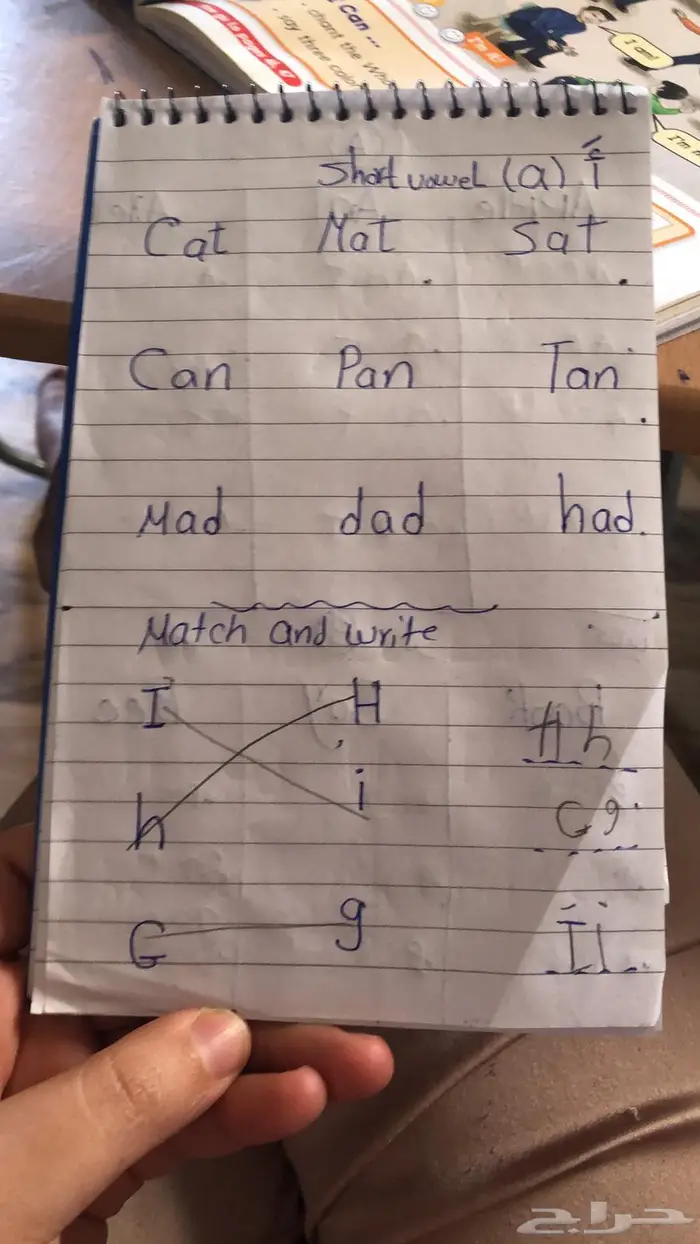 Can ...
, chant the
, say three
I'm 1
I am!
I'm
Short vowel (a) أَ
Cat Mat Sat
Can Pan Tan
Mad dad had.
Match and write
I H Hh
h i Gg
G g Ii
حراج